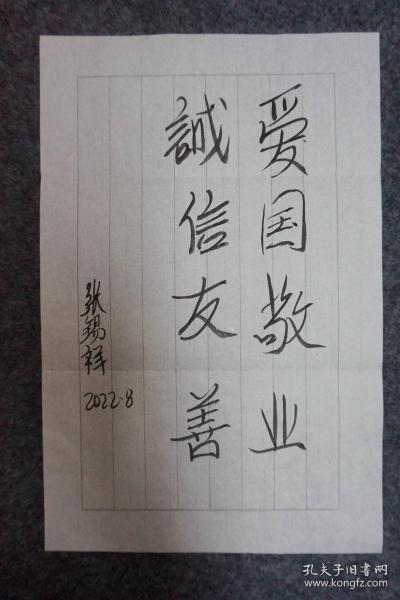 爱国敬业
誠信友善
张锡祥
2022.8
孔夫子旧书网
www.kongfz.com